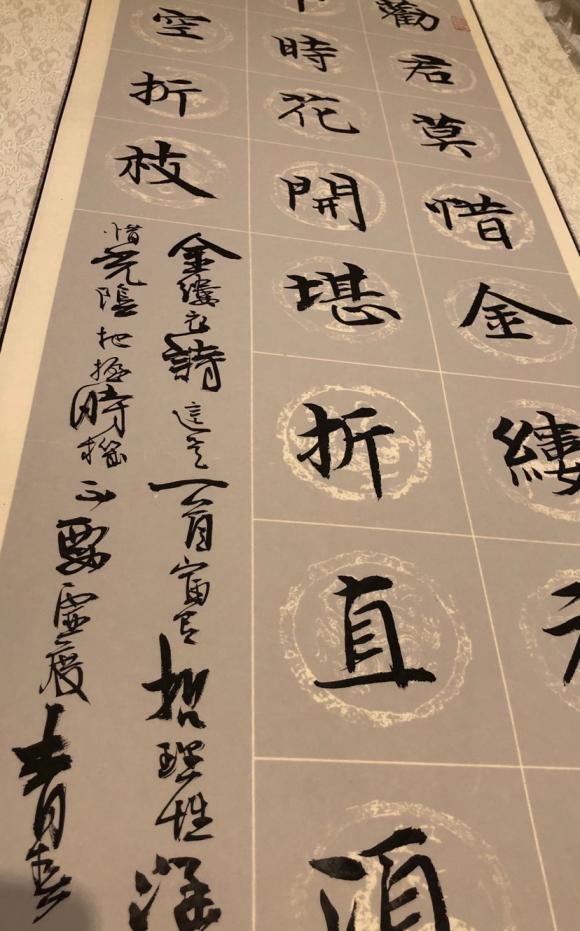 勸君莫惜金縷
時花開堪折直須
空折枝
金縷衣詩這是一首富有哲理性深
惜光陰把握時機不要虛度青春